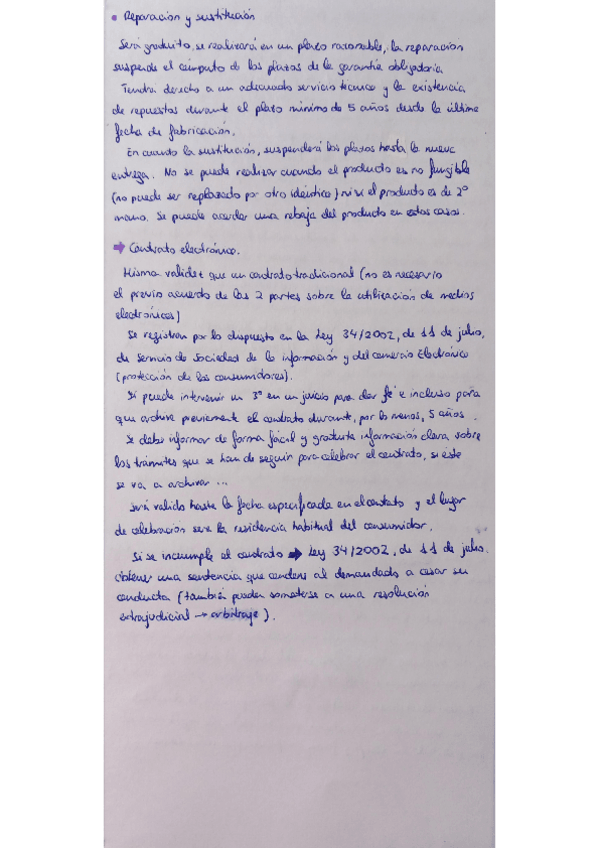 • Reparación y sustitución
Será gratuito, se realizará en un plazo razonable, la reparación
suspende el cómputo de los plazos de la garantía obligatoria.
Tendrá derecho a un adecuado servicio técnico y la existencia
de repuestos durante el plazo mínimo de 5 años desde la última
fecha de fabricación.
En cuanto la sustitución, suspenderá los plazos hasta la nueva
entrega. No se puede realizar cuando el producto es no fungible
(no puede ser replazado por otro idéntico) ni si el producto es de 2º
mano. Se puede acordar una rebaja del producto en estos casos.
➡ Contrato electrónico.
Misma validez que un contrato tradicional (no es necesario
el previo acuerdo de las 2 partes sobre la utilización de medios
electrónicos)
Se registran por lo dispuesto en la Ley 34/2002, de 11 de julio,
de servicio de Sociedad de la información y del comercio Electrónico
(protección de los consumidores).
Si puede intervenir un 3º en un juicio para dar fé e incluso para
que archive previamente el contrato durante, por lo menos, 5 años.
Se debe informar de forma fácil y gratuita información clara sobre
los trámites que se han de seguir para celebrar el contrato, si éste
se va a archivar ...
Será valido hasta la fecha especificada en el contato y el lugar
de celebración será la residencia habitual del consumidor.
Si se incumple el contrato ➡ Ley 34/2002, de 11 de julio.
obtener una sentencia que condene al demandado a cesar su
conducta (también pueden someterse a una resolución
extrajudicial → arbitraje).